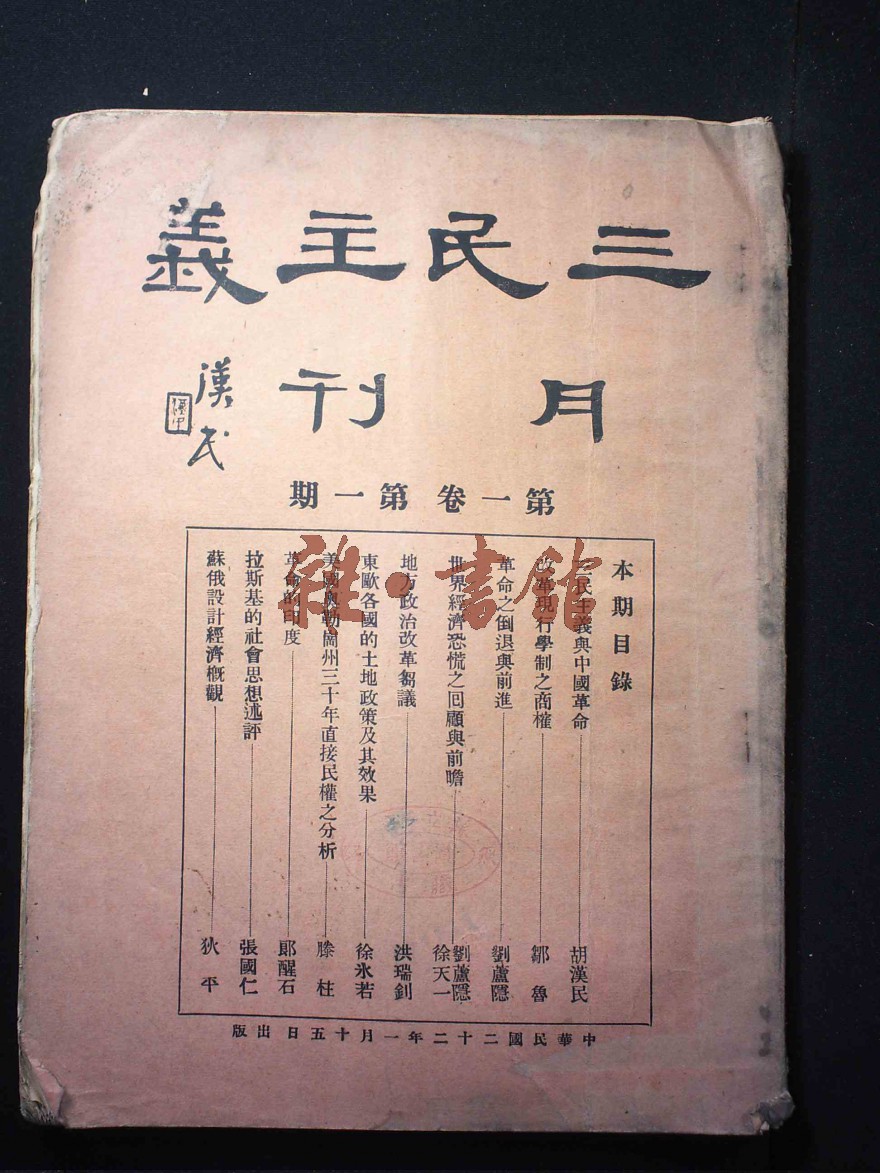 三民主義
月刊
漢民
第一卷 第一期
本期目錄
三民主義與中國革命 胡漢民
改革現行學制之商榷 鄒魯
革命之倒退與前進 劉蘆隱
世界經濟恐慌之回顧與前瞻 劉蘆隱 徐天一
地方政治改革芻議 洪瑞釗
東歐各國的土地政策及其效果 徐氷若
美國奧勒崗州三十年直接民權之分析 滕柱
革命的印度 郞醒石
拉斯基的社會思想述評 張國仁
蘇俄設計經濟槪觀 狄平
中華民國二十二年一月十五日出版
雜·書館